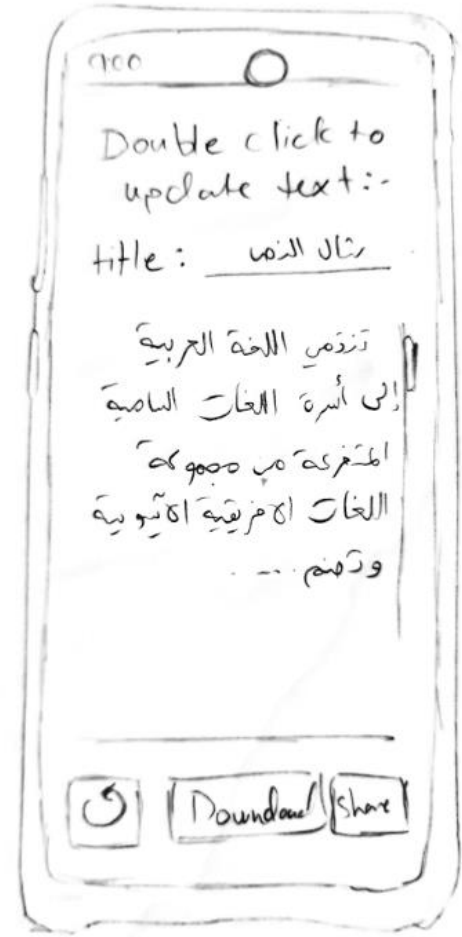 900
Double click to
update text:-
title: مثال النص
تنتمي اللغة العربية
إلى أسرة اللغات السامية
المتفرعة من مجموعة
اللغات الافريقية الآسيوية
وتضم ....
Download
Share